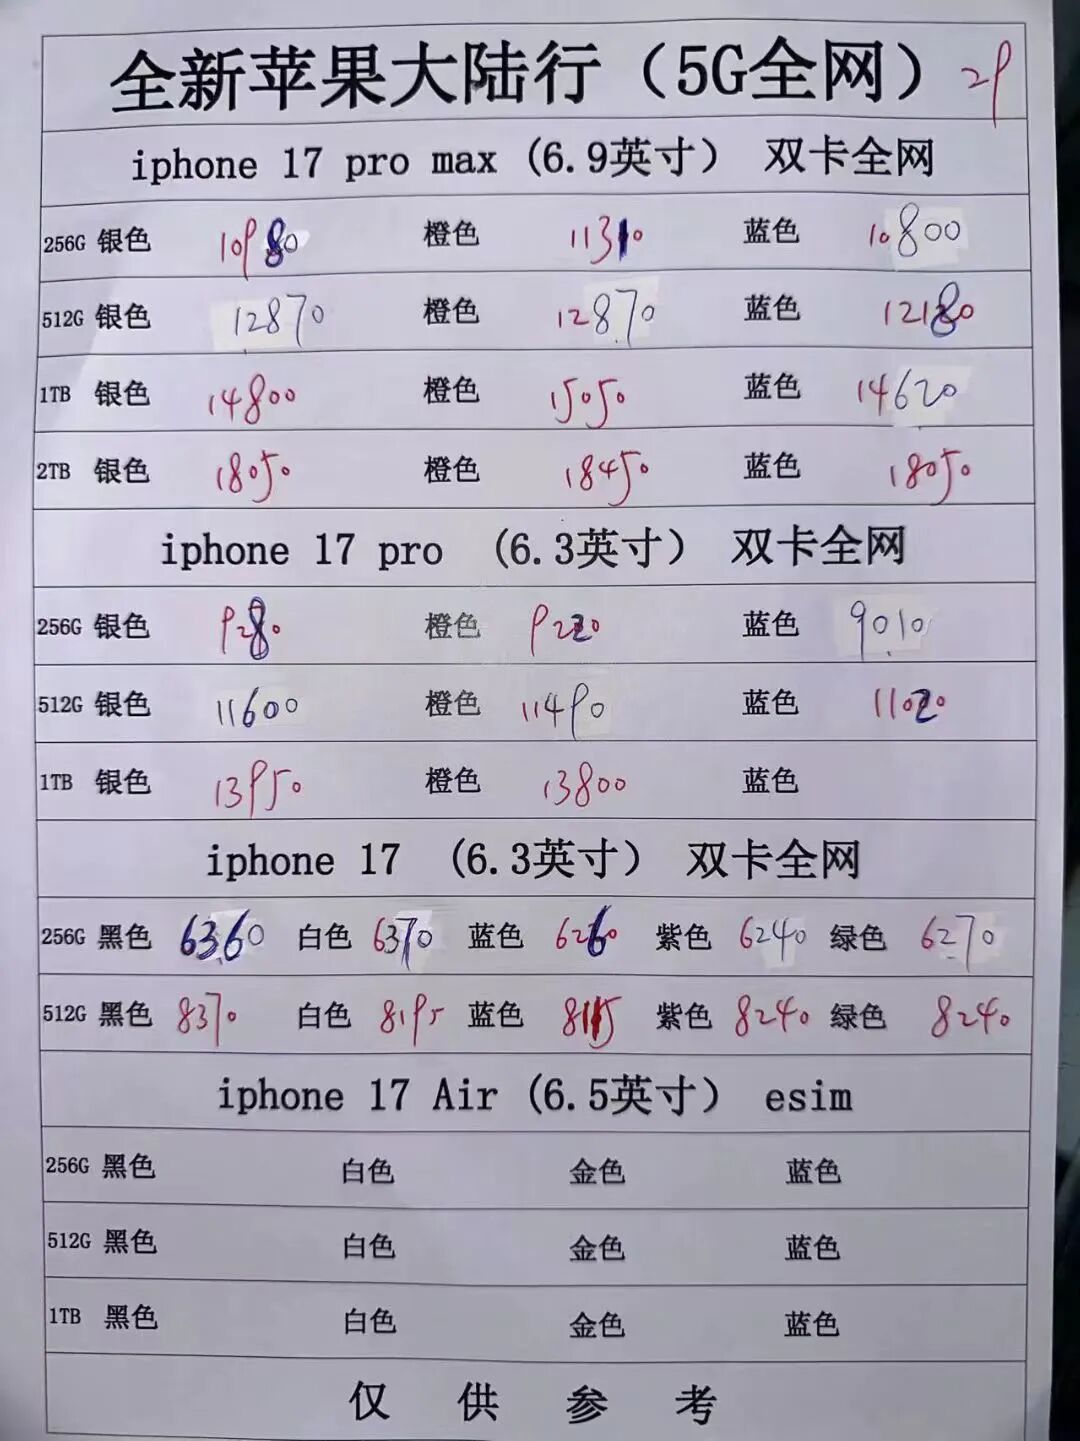 全新苹果大陆行（5G全网） 29
iphone 17 pro max (6.9英寸） 双卡全网
256G 银色 10980 橙色 11310 蓝色 10800
512G 银色 12870 橙色 12870 蓝色 12180
1TB 银色 14800 橙色 15050 蓝色 14620
2TB 银色 18050 橙色 18450 蓝色 18050
iphone 17 pro (6.3英寸） 双卡全网
256G 银色 9280 橙色 9220 蓝色 9010
512G 银色 11600 橙色 11490 蓝色 11020
1TB 银色 13950 橙色 13800 蓝色
iphone 17 (6.3英寸） 双卡全网
256G 黑色 6360 白色 6370 蓝色 6260 紫色 6240 绿色 6270
512G 黑色 8370 白色 8195 蓝色 紫色 8240 绿色 8240
iphone 17 Air (6.5英寸） esim
256G 黑色 白色 金色 蓝色
512G 黑色 白色 金色 蓝色
1TB 黑色 白色 金色 蓝色
仅供参考